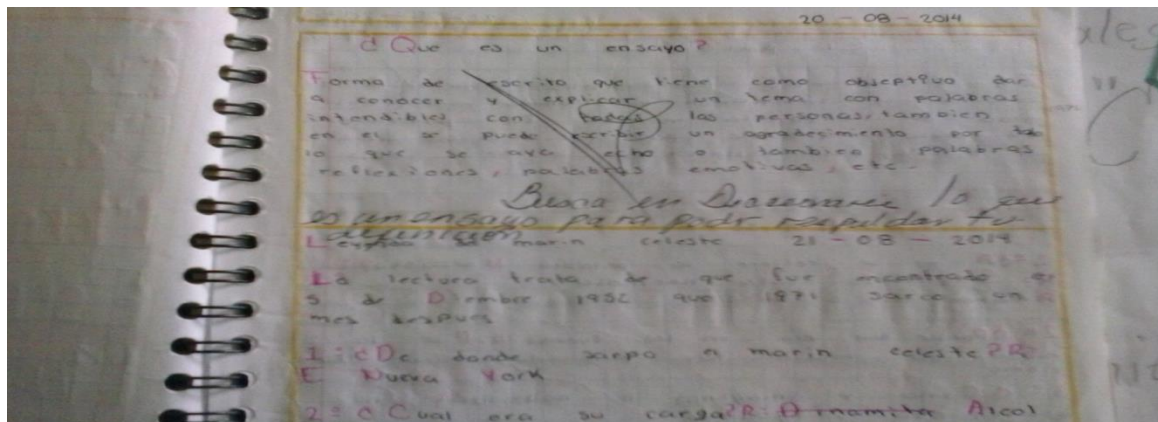 20 - 08 - 2014
¿ Que es un ensayo ?
Forma de escrito que tiene como obseptivo dar
a conocer y explicar un tema con palabras
intendibles con todas las personas, tambien
en el se puede escribir un agradesimiento por
lo que se aya echo o tambien palabras
reflexiones, palabras emotivas, etc.
Busca en lo que
es un ensayo para poder respaldar tu
marin celeste 21 - 08 - 2014
La lectura trata de que fue encontrado
5 de Diembre 1952 que 1871 un
mes despues
1 = ¿De donde sarpo el marin celeste? R:
Nueva York
2 = ¿Cual era su carga? R: Alcol